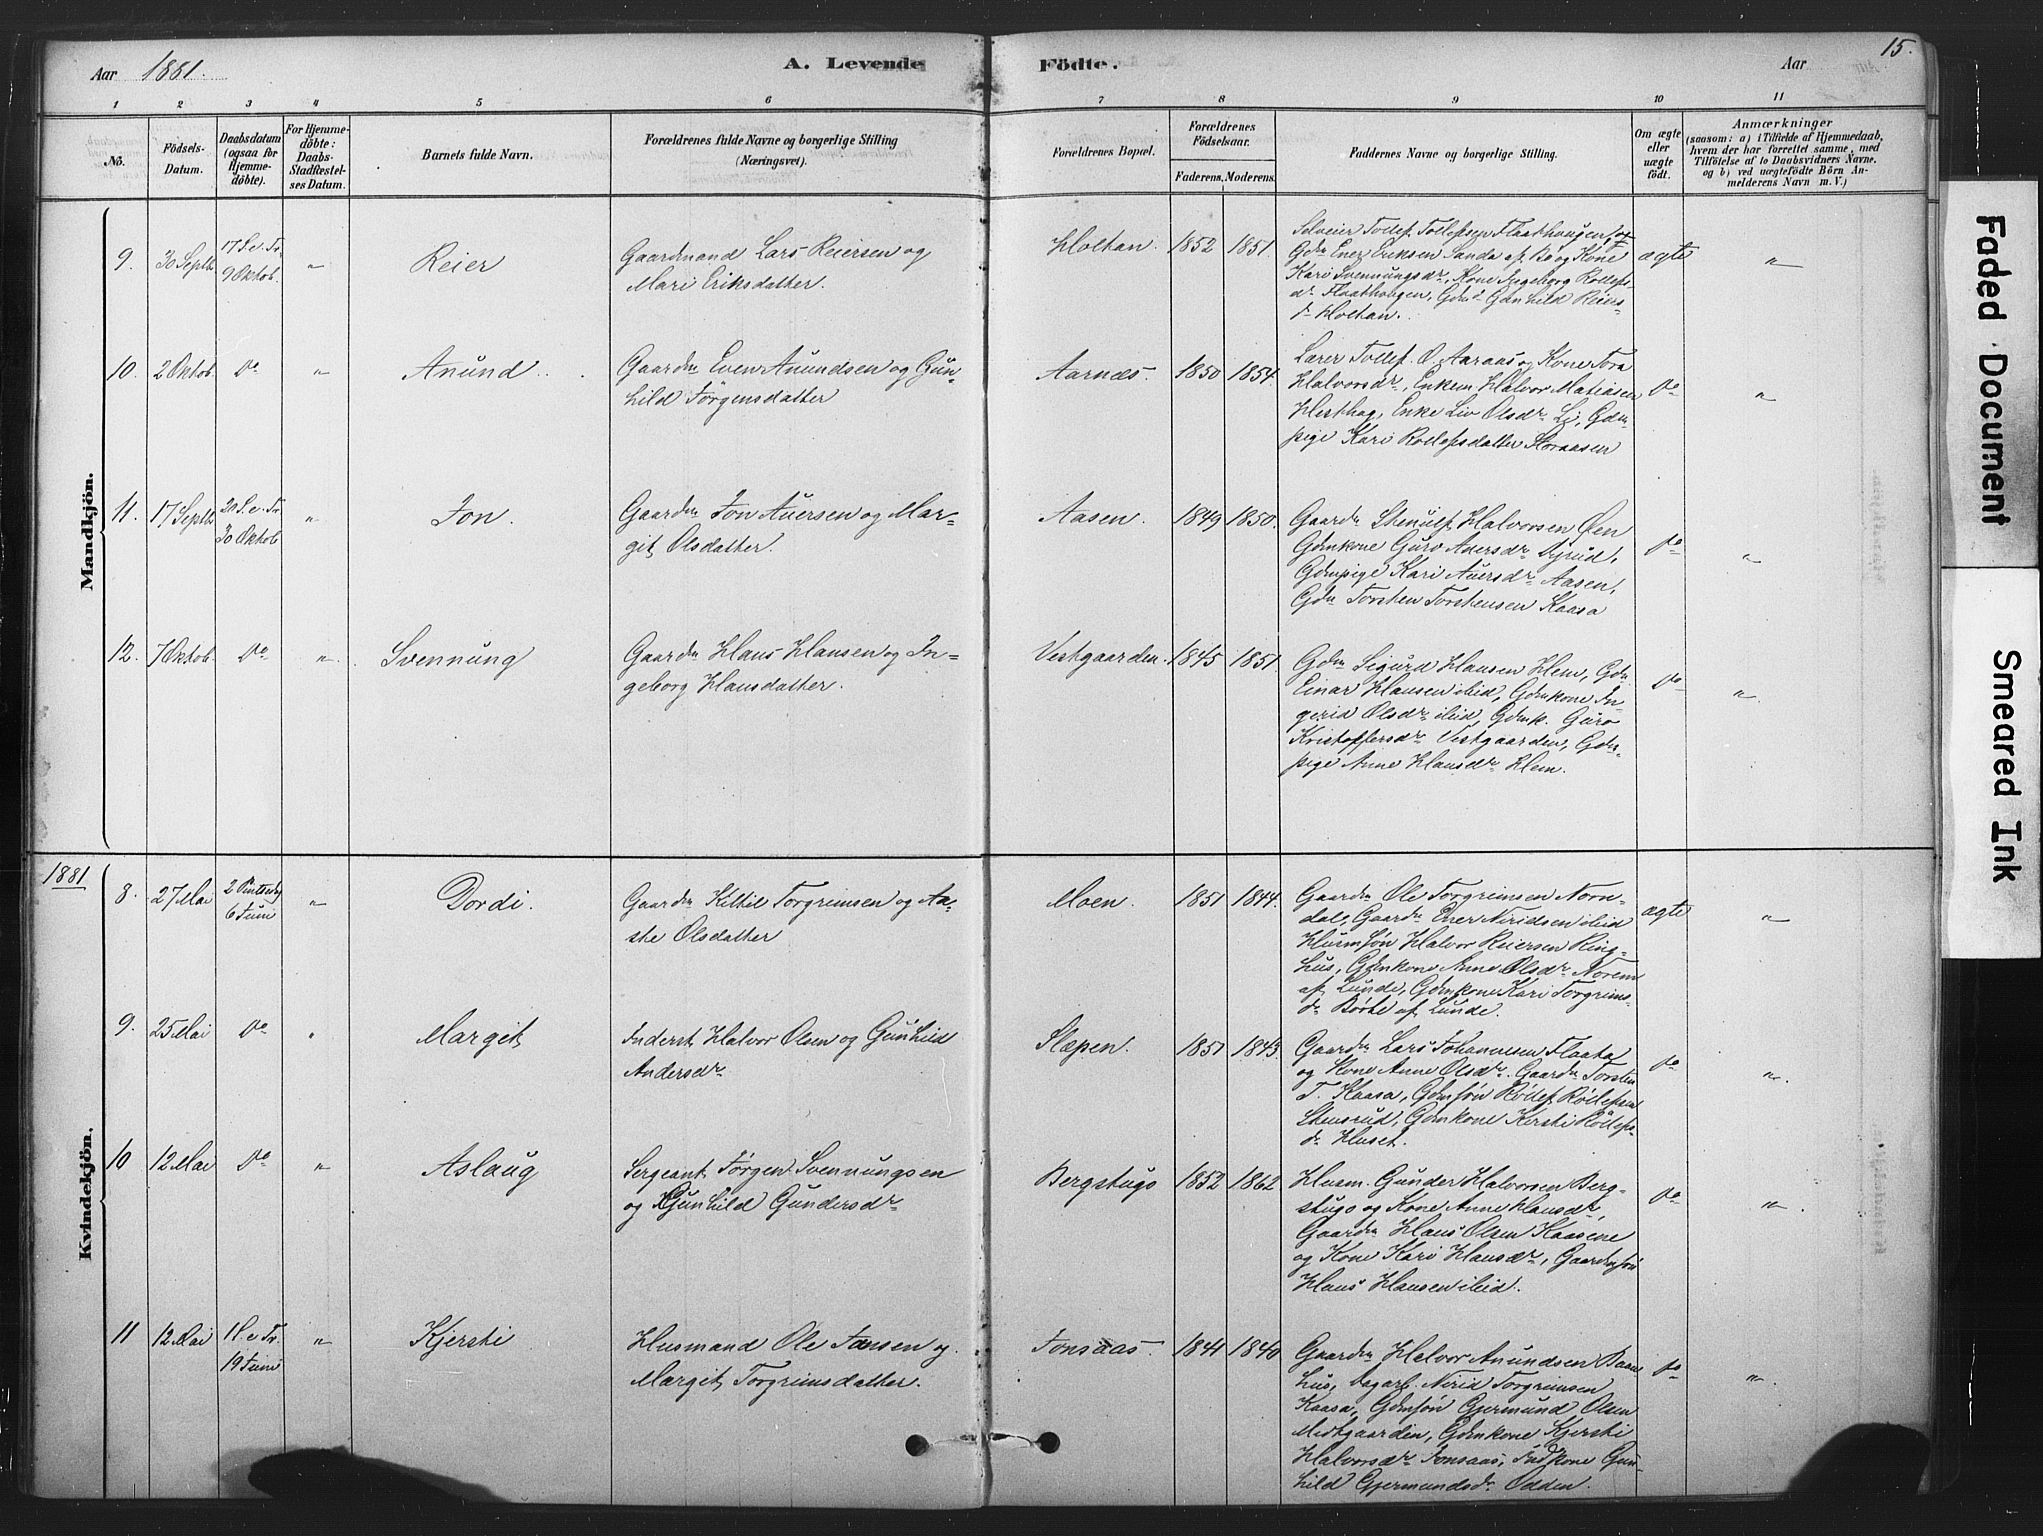 Aar 1881.
A. Levende Födte.
Aar
15.
1 2 3 4 5 6 7 8 9 10 11
No.
Födsels-
Datum.
Daabsdatum
(ogsaa for
Hjemme-
döbte).
For Hjemme-
döbte:
Daabs-
Stadfæstel-
ses Datum.
Barnets fulde Navn.
Forældrenes fulde Navne og borgerlige Stilling
(Næringsvei).
Forældrenes Bopæl.
Forældrenes
Födselsaar.
Faderens. Moderens.
Faddernes Navne og borgerlige Stilling.
Om ægte
eller
uægte
födt.
Anmærkninger
(saasom: a) i Tilfælde af Hjemmedaab,
hvem der har forrettet samme, med
Tilföielse af to Daabsvidners Navne.
og b) ved uægtefödte Börn An-
melderens Navn m.V.)
Mandkjön.
9. 30 Septb. 17 S. e. Tr.
9 Oktob. " Reier
Gaardmand Lars Reiersen og
Mari Eriksdatter.
Holtan. 1852 1851.
Selveier Tollef Tollefsen Flaathougen, og
Gdm Ener Eriksen Sanda af Bø og Kone
Kari Svennungsdr, Kone Ingeborg Rollefs-
dr Flaathougen, Gdm Gunhild Reiers-
dr Holtan.
ægte "
10. 2 Oktob. do " Anund
Gaardm Even Anundsen og Gun-
hild Jörgensdatter
Aarnes. 1850 1854.
Lærer Tollef O. Aaraas og Kone Tora
Halvorsdr, Enkem. Halvor Matiasen
Hesthag, Enke Liv Olsdr Li, Gdm-
pige Kari Rollefsdatter Storaasen
do "
11. 17 Septb. 20 S. e. Tr.
30 Oktob. " Jon.
Gaardm Jon Aversen og Mar-
git Olsdatter.
Aasen. 1849 1850.
Gaardm Stenulf Halvorsen Øen
Gdmkone Guro Aversdr Dyrud,
Gdmpige Kari Aversdr Aasen,
Gdm Torsten Torstensen Kaasa
do "
12. 7 Oktob. do " Svennung
Gaardm Hans Hansen og In-
geborg Hansdatter.
Vestgaarden. 1845 1851
Gdm Sigurd Hansen Hem, Gdm
Einar Hansen ibid, Gdmkone In-
gerid Olsdr ibid, Gdmk. Guro
Kristoffersdr Vestgaarden, Gdm-
pige Anne Hansdr Hem.
do "
1881
Kvindekjön.
8. 27 Mai 2 Pintsedag
6 Juni " Dordi.
Gaardm Kittil Torgrimsen og Aa-
ste Olsdatter
Moen. 1851 1844.
Gaardm Ole Torgrimsen Norn-
dal, Gaardm Ener Niridsen ibid
Husmsön Halvor Reiersen Ring-
hus, Gdmkone Anne Olsdr Norem
af Lunde, Gdmkone Kari Torgrims-
dr Børte af Lunde.
ægte "
9. 25 Mai do " Margit
Inderst Halvor Olsen og Gunhild
Andersdr
Slæpen. 1851 1843.
Gaardm Lars Johannesen Flaata
og Kone Anne Olsdr. Gaardm Torsten
T. Kaasa, Gdmsön Rollef Rollefsen
Stensrud, Gdmkone Kirsti Rollefs-
dr Huset.
do "
10 12 Mai do " Aslaug
Sergeant Jørgen Svennungsen
og Gunhild Gundersdr
Bergstugo 1852 1862
Husm. Gunder Halvorsen Berg-
stugo og Kone Anne Hansdr,
Gaardm Hans Olsen Kaasene
og Kone Kari Hansdr, Gaardmsön
Hans Hansen ibid.
do "
11 12 Mai 1 S. e Tr.
19 Juni " Kjersti
Husmand Ole Jansen og
Margit Torgrimsdatter.
Jonsaas. 1841 1840
Gaardm Halvor Anundsen Baan-
hus, Dagarb. Nirid Torgrimsen
Kaasa, Gdmsön Gjermund Olsen
Midtgaarden, Gdmkone Kjersti
Halvorsdr Jonsaas, Indkone Gun-
hild Gjermundsdr Odden.
do "
Faded Document
Smeared Ink